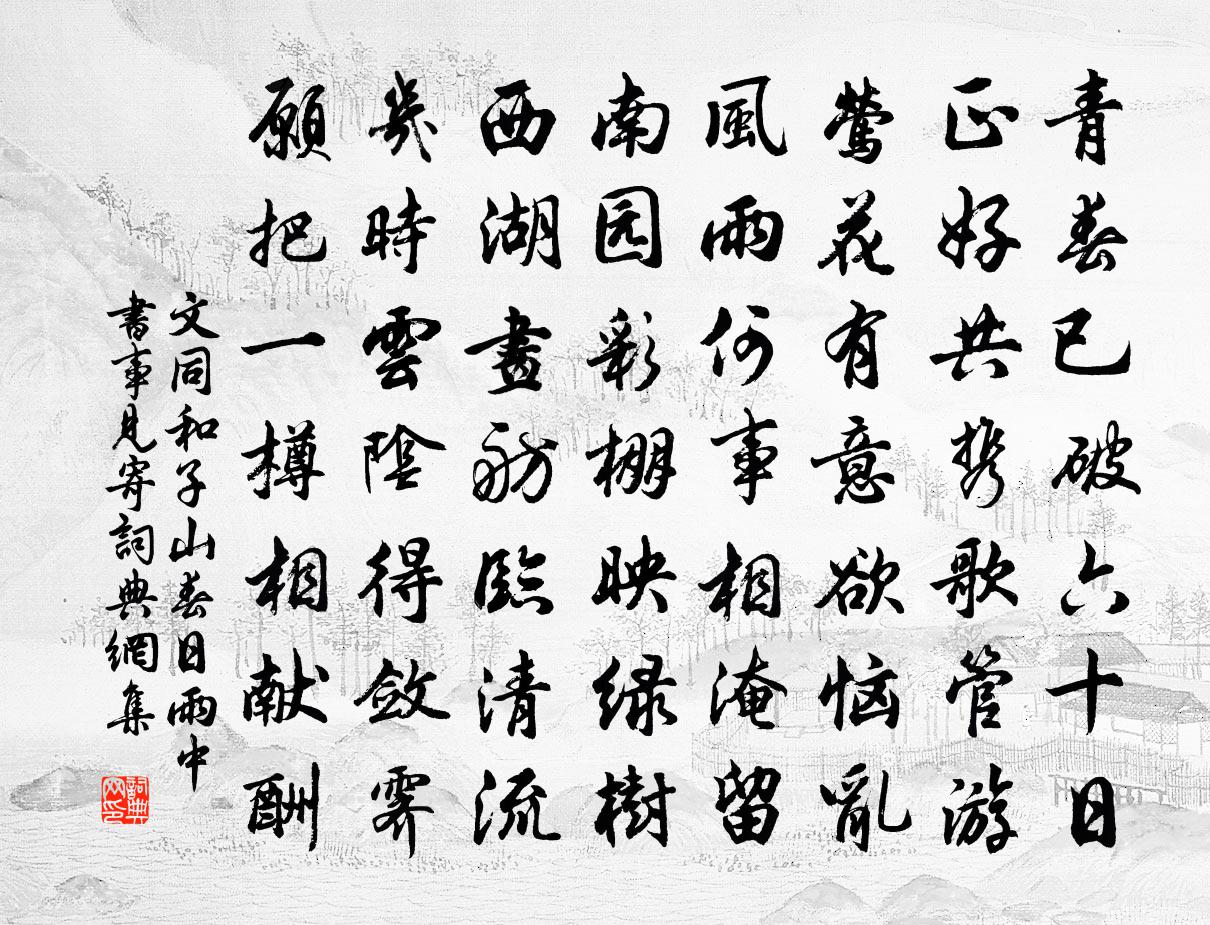 青春已破六十日
正好共携歌管游
莺花有意欲恼亂
風雨何事相淹留
南园彩棚映绿樹
西湖畫舫臨清流
幾時雲陰得斂霽
願把一樽相献酬
文同和子山春日雨中
書事見寄詞典網集
詞典
网印